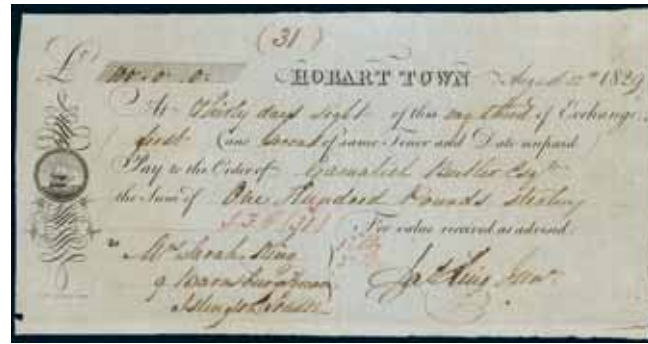 (31)
£ 100..0..0. HOBART TOWN August 1829
At Thirty days sight of this my third of Exchange
first and second of same Tenor and Date unpaid
Pay to the Order of Gamaliel Butler Esqre
the Sum of One Hundred Pounds Sterling
For value received as advised.
Mrs Sarah King
9 Barnsbury
Islington London